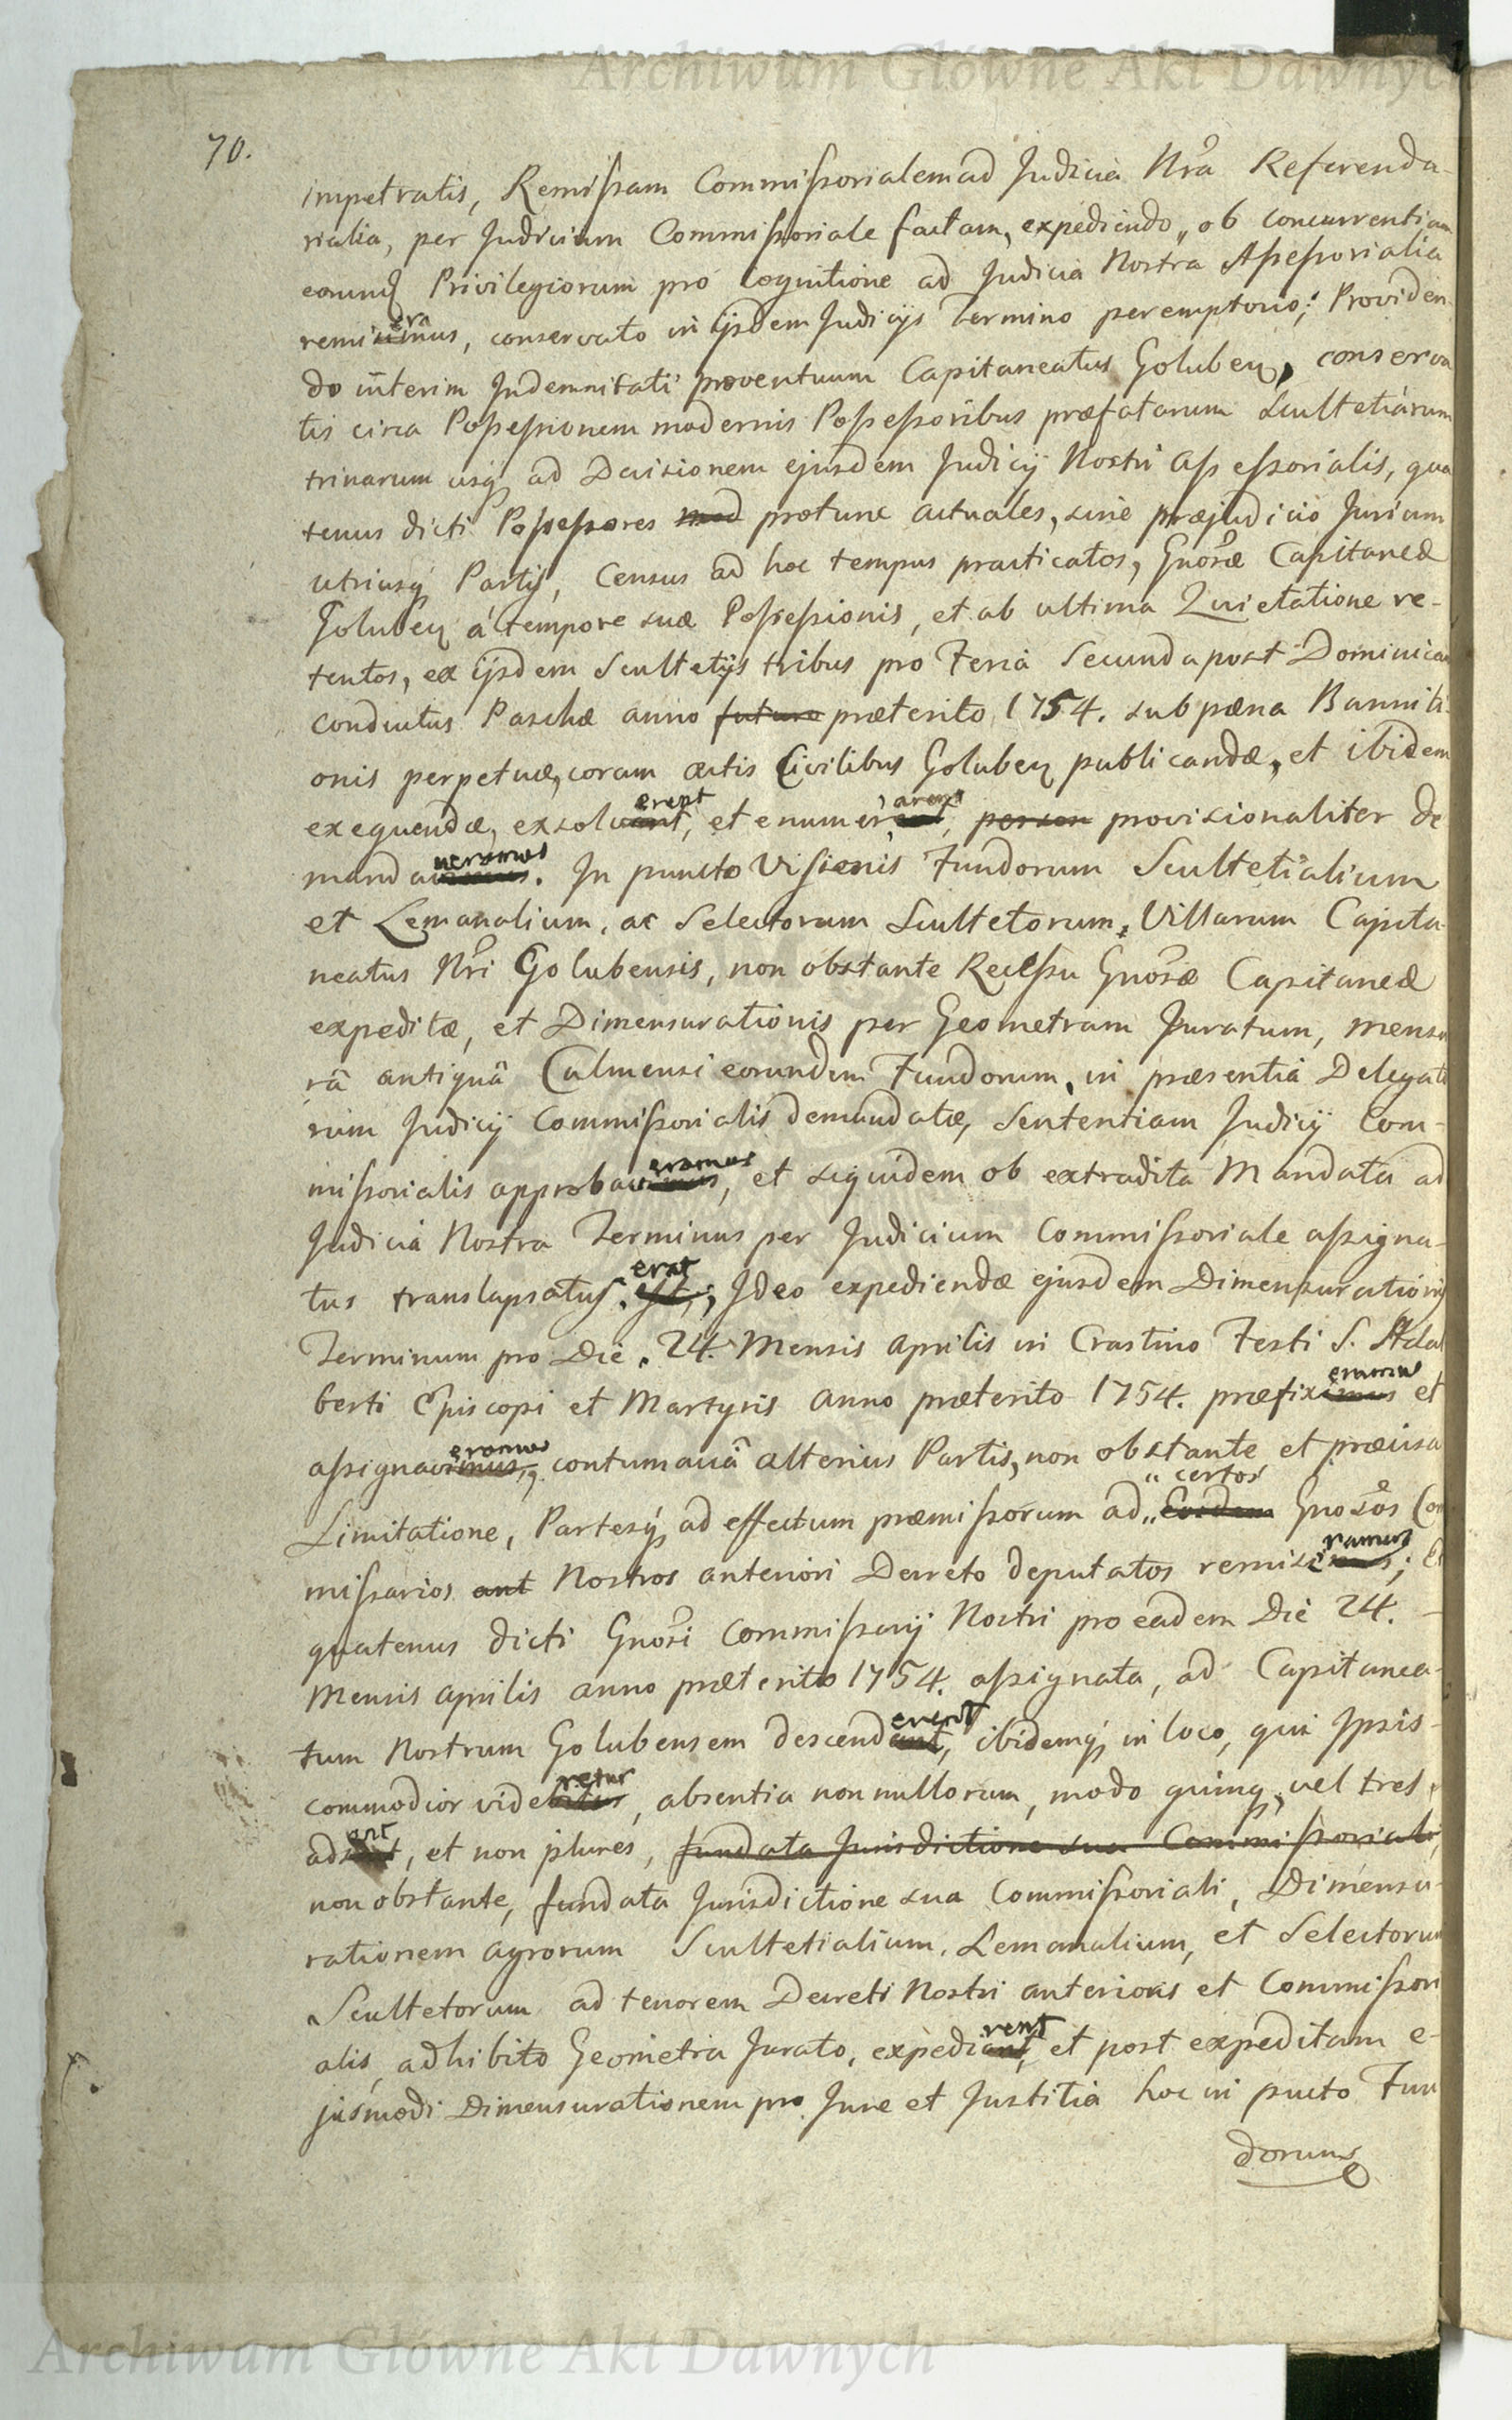 Archiwum Główne Akt Dawnych
70.
impetratis, Remissam Commissorialem ad Judicia Nra Referenda-
rialia, per Judicium Commissoriale factam, expediendo, ob concurrentiam
eorunq Privilegiorum pro Cognitione ad Judicia Nostra Assessorialia
remiseramus, conservato in ijsdem Judicijs termino peremptorio; Providen
do interim Indemnitati proventuum Capitaneatus Goluben, conserva
tis circa Possessionem modernis Possessoribus præfatarum Scultetiarum
trinarum usq ad Decisionem ejusdem Judicij Nostri Assessorialis, qua
tenus dicti Possessores mod protunc actuales, sine præjudicio Jurium
utriusq Partis, Census ad hoc tempus practicatos, Gnosæ Capitaneæ
Goluben á tempore suæ Possessionis, et ab ultima Quietatione re-
tentos, ex ijsdem Scultetijs tribus pro Feria Secunda post Dominicam
Conductus Paschæ anno futuro præterito 1754. sub pæna Banniti-
onis perpetuæ, coram actis Civilibus Goluben publicandæ, et ibidem
exequendæ, exsoluerent, et enumerarent, person provisionaliter de
mandaueramus. In puncto Visionis Fundorum Scultetialium
et Lemanalium, ac Selectorum Scultetorum, Villarum Capita-
neatus Nri Golubensis, non obstante Recessu Gnosæ Capitaneæ
expeditæ, et Dimensurationis per Geometram Juratum, mensu
râ antiquâ Culmensi eorundem Fundorum, in præsentia Delegato
rum Judicij Commissorialis demandatæ, Sententiam Judicij Com-
missorialis approbaueramus, et siquidem ob extradita Mandata ad
Judicia Nostra Terminus per Judicium Commissoriale assigna-
tus translapsatus erat, Ideo expediendæ ejusdem Dimensurationis
Terminum pro Die 24. Mensis Aprilis in Crastino Festi S. Adal
berti Episcopi et Martyris Anno præterito 1754. præfixeramus et
assignaveramus, contumaciâ alterius Partis, non obstante et præcisa
Limitatione, Partesq ad effectum præmissorum ad Eosdem certos Gnosos Com
missarios ant Nostros anteriori Decreto deputatos remiseramus; Et
quatenus dicti Gnosi Commissarij Nostri pro eadem Die 24.
Mensis Aprilis anno præterito 1754. assignata, ad Capitanea-
tum Nostrum Golubensem descenderent, ibidemq in loco, qui Ipsis
commodior videretur, absentia nonnullorum, modo quinq vel tres
adsint, et non plures, fundata Jurisdictione sua Commissoriali,
non obstante, fundata Jurisdictione sua Commissoriali, Dimensu-
rationem agrorum Scultetialium, Lemanalium, et Selectorum
Scultetorum ad tenorem Decreti Nostri anterioris et Commissori
alis, adhibito Geometra Jurato, expedirent, et post expeditam e-
jusmodi Dimensurationem pro Jure et Justitia hoc in pucto Fun
dorum
Archiwum Główne Akt Dawnych